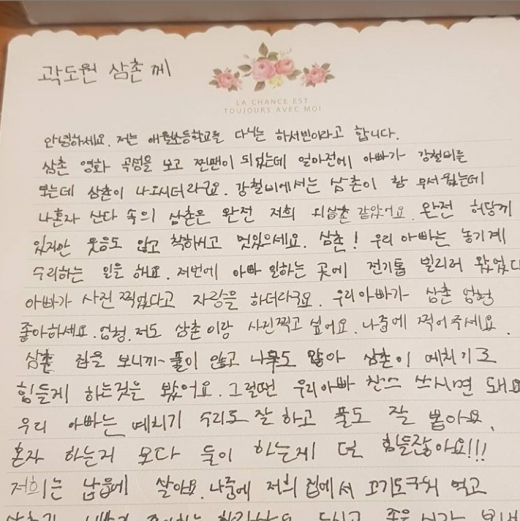 곽도원 삼촌께
LA CHANCE EST
TOUJOURS AVEC MOI
안녕하세요. 저는 애월초등학교를 다니는 하서빈이라고 합니다.
삼촌 영화 곡성을 보고 찐팬이 되었는데 얼마전에 아빠가 강철비를
봤는데 삼촌이 나오시더라구요. 강철비에서는 삼촌이 참 무서웠는데
나혼자 산다 속의 삼촌은 완전 저희 외삼촌 같았어요. 완전 허당끼
있지만 웃음도 많고 착하시고 멋있으세요. 삼촌! 우리 아빠는 농기계
수리하는 일을 해요. 저번에 아빠 일하는 곳에 전기톱 빌리러 왔었다
아빠가 사진 찍었다고 자랑을 하더라구요. 우리아빠가 삼촌 엄청
좋아하세요. 엄청. 저도 삼촌이랑 사진찍고 싶어요. 나중에 찍어주세요.
삼촌 집을 보니까~ 풀이 많고 나무도 많아 삼촌이 예치기로
힘들게 하는것을 봤어요. 그럴땐 우리아빠 찬스 쓰시면 돼요
우리 아빠는 예치기 수리도 잘하고 풀도 잘 뽑아요.
혼자 하는거 보다 둘이 하는게 덜 힘들잖아요!!!
저희는 납읍에 살아요. 나중에 저희 집에서 고기도 구워 먹고